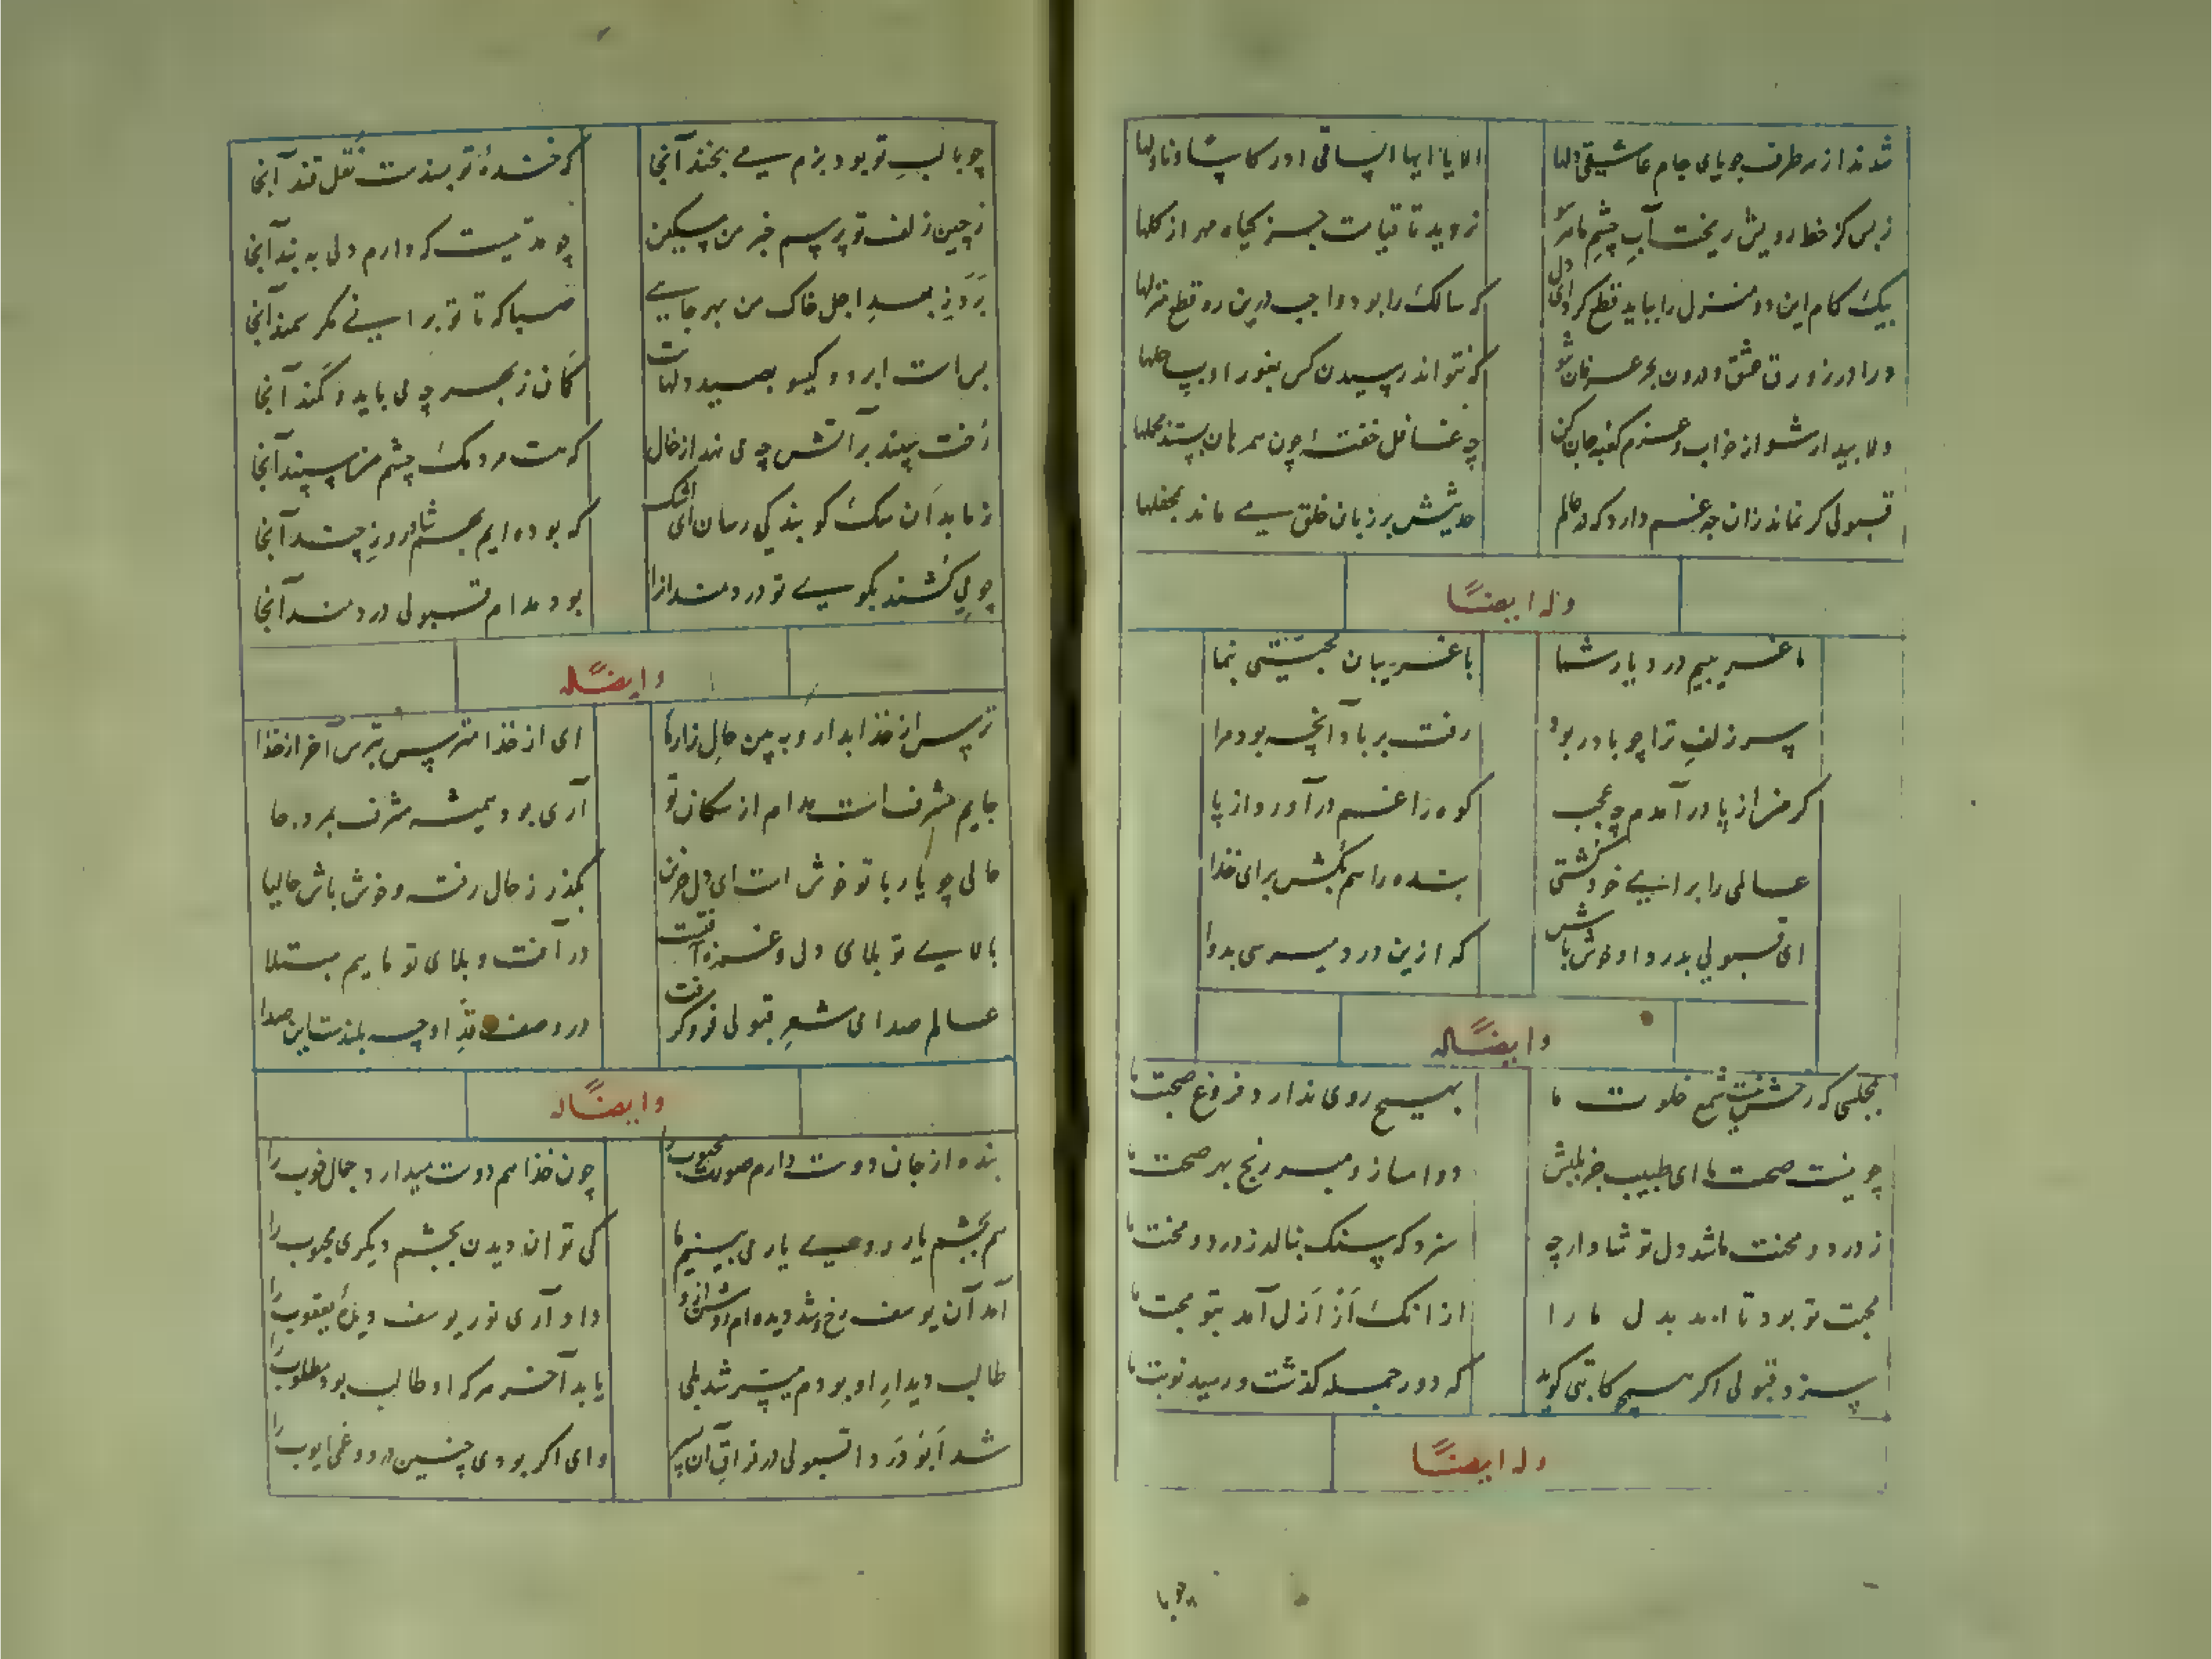 شدند از هر طرف جویای جام عاشیقی دلها الا یا ایها الساقی ادر کاسا وناولها
ز بس کز خط رویش ریخت آب چشم ما نروید تا قیامت جز گیاه مهر از گلها
بیک کام این دو منزل را بباید قطع کرد ای دل که سالک را بود واجب درین ره قطع منزلها
درا در زورق عشق و درون بحر عرفان شو که نتواند رسیدن کس بغور او بساحلها
دلا بیدار شو از خواب و عزم کعبه جان کن چه غافل خفتهٔ چون همرهان بستند محملها
قبولی گر نماند زان چه غم دارد که در عالم حدیثش بر زبان خلق می ماند بمحفلها
وله ایضًا
ما غریبیم در دیار شما با غریبان محبتی بنما
سر زلف ترا چو باد ربود رفت بر باد آنچه بود مرا
گر من از پا در آمدم چه عجب کوه را غم در آورد از پا
عالمی را برای خود کشتی بنده را هم بکش برای خدا
ای قبولی بدرد او خوش باش که ازین درد میرسی بدوا
وایضًا له
بمجلسی که رخش نیست شمع خلوت ما بهیچ روی ندارد فروغ صحبت ما
چو نیست صحت ما ای طبیب جز بلبش دوا مساز و مبر رنج بهر صحت ما
ز درد و محنت ما شد دل تو شاد ار چه سزد که سنک بنالد ز درد و محنت ما
محبت تو بود تا ابد بدل ما را از انک از ازل آمد بتو محبت ما
سزد قبولی اگر هیچ کاتبی گوید که دور جمله گذشت و رسید نوبت ما
وله ایضًا
چو با
چو با لب تو بود بزم می بخند آنجا که خندهٔ تو بسندست نقل قند آنجا
ز چین زلف تو پرسم خبر من مسکین چو مدتیست که دارم دلی به بند آنجا
برد ز بعد اجل خاک من بهر جایی صبا که تا تو برانی مگر سمند آنجا
بس است ابرو و گیسو بصید دلهات کمان ز بهر چه می باید و کمند آنجا
رخت سپند بر آتش چه می نهد از خال که هست مردمک چشم من سپند آنجا
ز ما بدان سک کو بندگی رسان ای اشک که بوده ایم بهم آشنا دو روز چند آنجا
چو می کشند بکوی تو دردمندانرا بود مدام قبولی دردمند آنجا
وایضًا له
ترس از خدا بدار و به بین حال زار ما ای از خدا نترس بترس آخر از خدا
جایم مشرف است مدام از مکان تو آری بود همیشه مشرف بمرد جا
حالی چو یار با تو خوش است ای دل حزین بگذر ز حال رفته و خوش باش حالیا
بالای تو بلای دل و غمزه آفتست در آفت و بلای تو ماییم مبتلا
عالم صدای شعر قبولی فرو گرفت در وصف قد او چه بلندست این صدا
وایضًا له
بنده از جان دوست دارم صورت محبوب را چون خدا هم دوست میدارد جمال خوب را
هم بچشم یار روی یار می بینیم ما کی توان دیدن بچشم دیگری محبوب را
آمد آن یوسف رخ و شد دیده ام روشن ازو داد آری نور یوسف دیدهٔ یعقوب را
طالب دیدار او بودم میسر شد بلی یابد آخر هر که او طالب بود مطلوب را
شد ابو دردا قبولی در فراق آن پسر وای اگر بودی چنین درد و غمی ایوب را